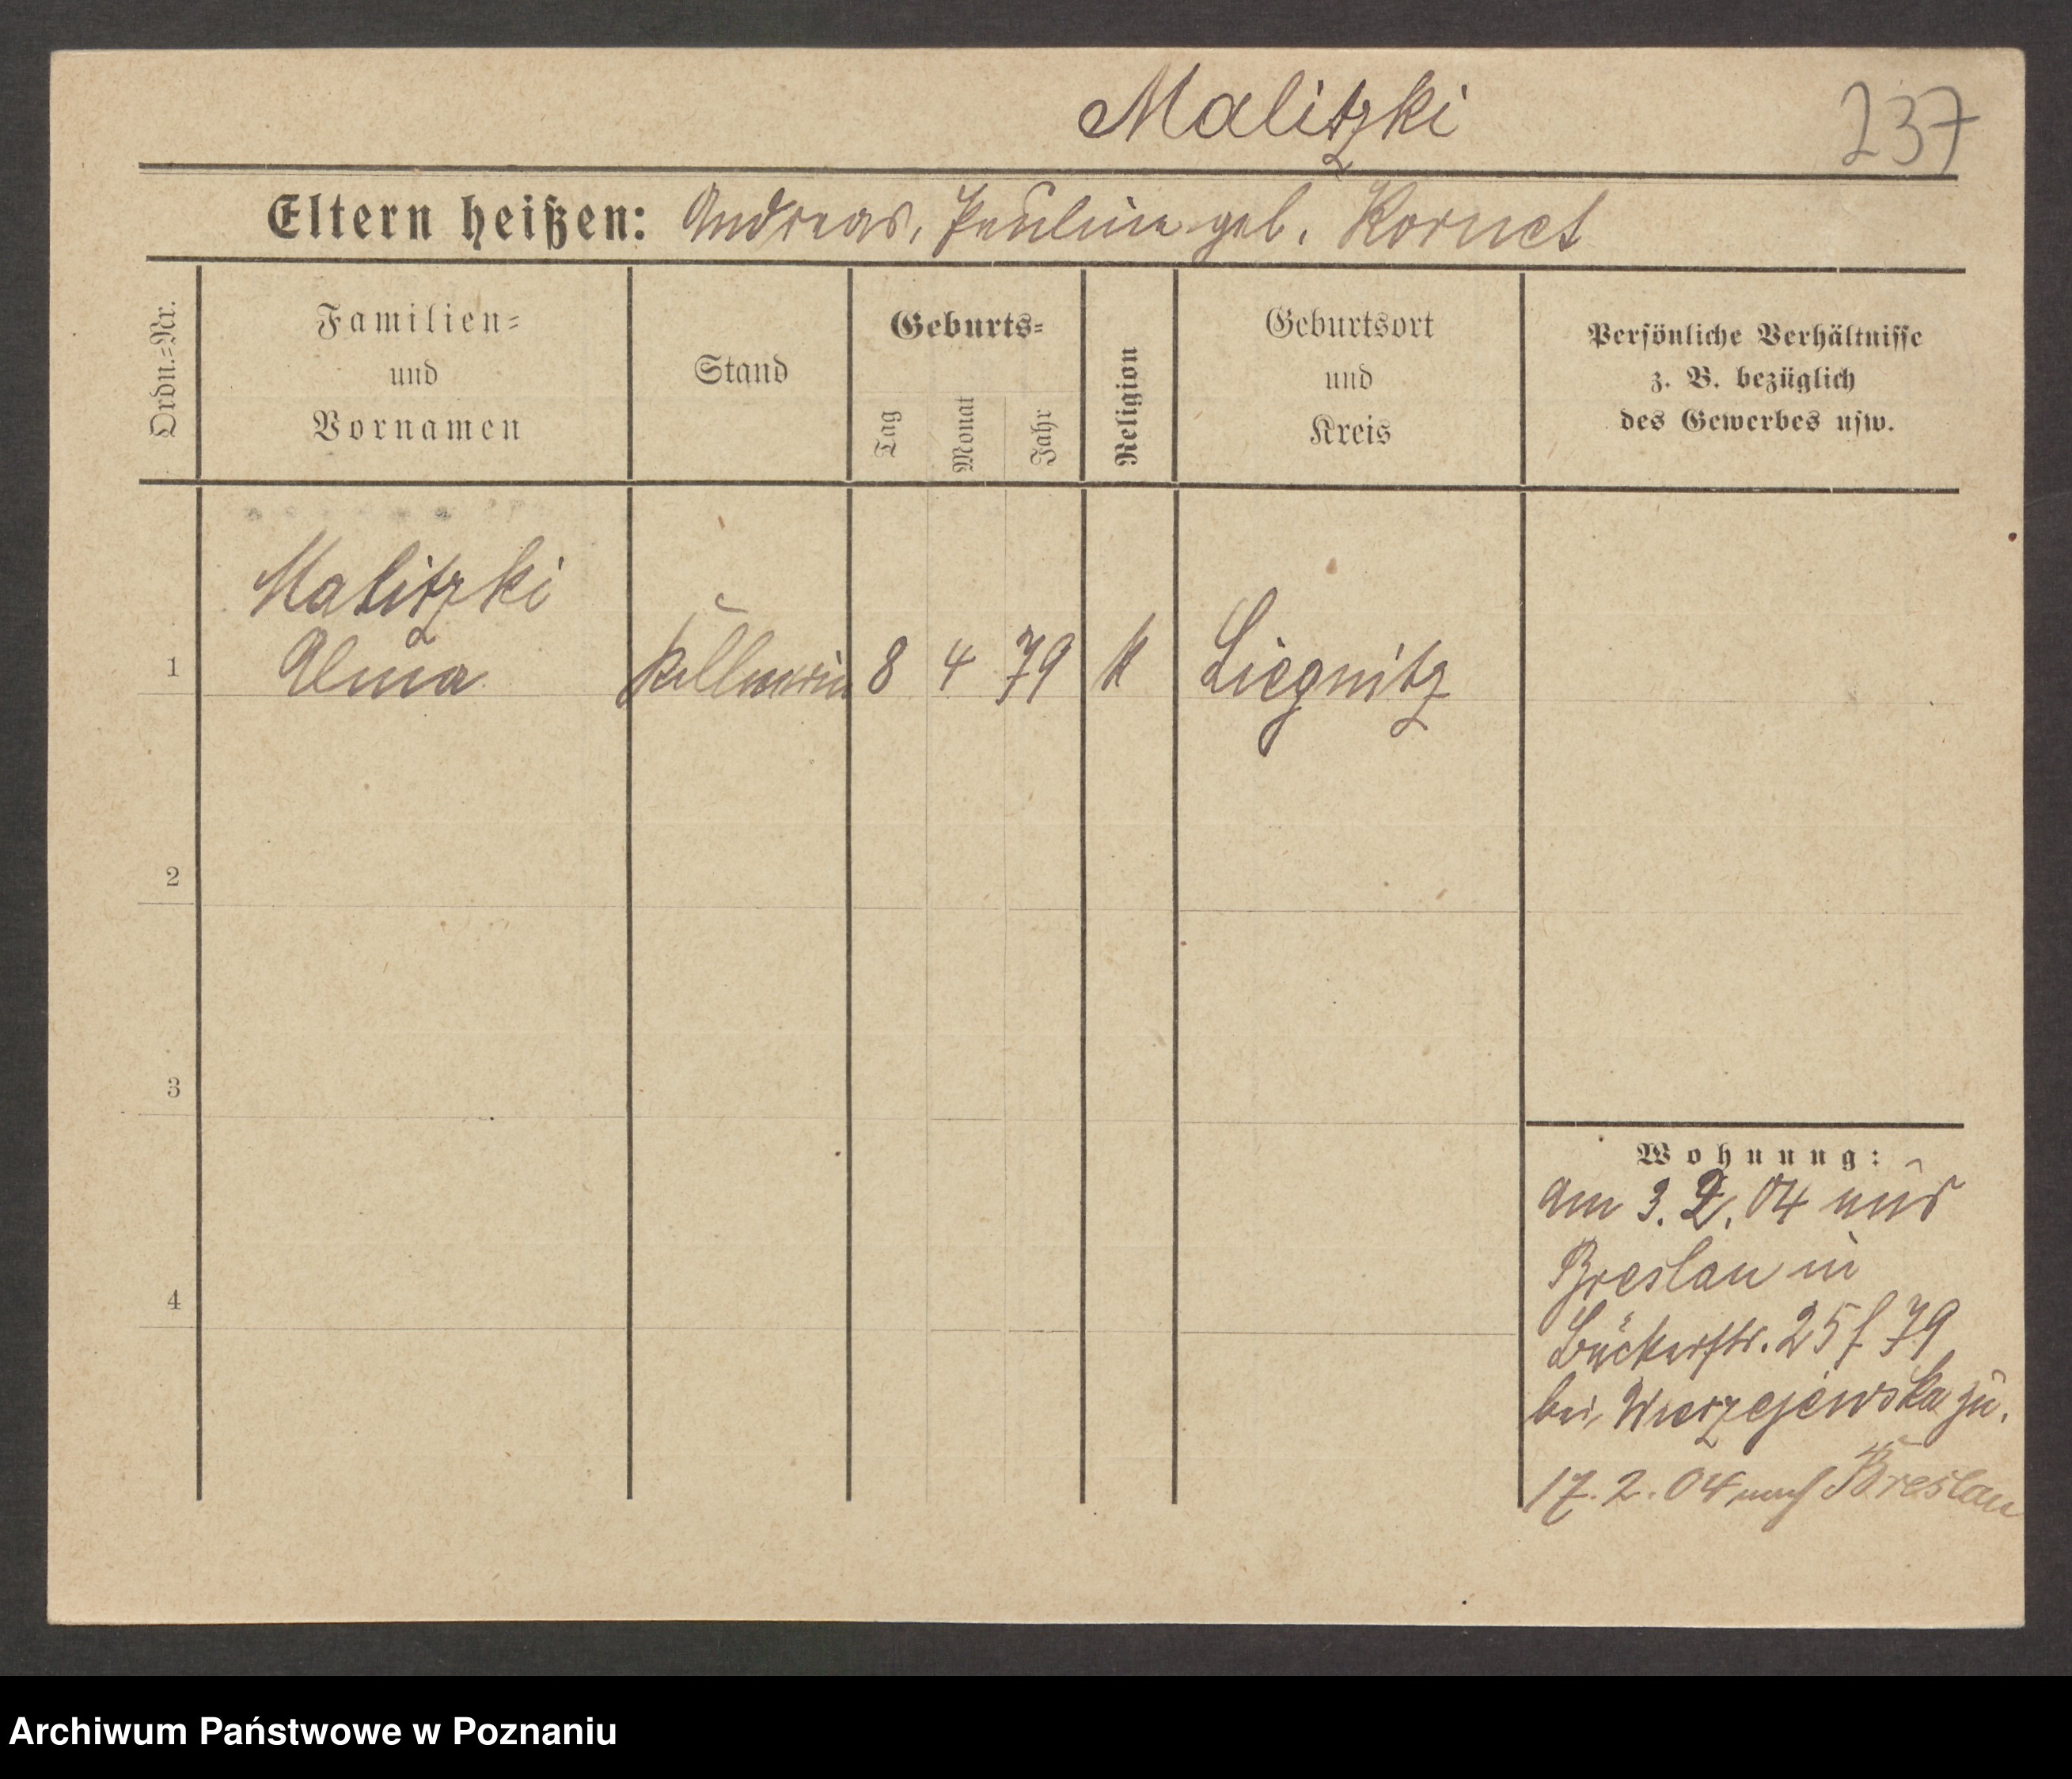 Malitzki
237
Eltern heißen: Andreas, Pauline geb. Kornet
Ordn.=Nr.
Familien=
und
Vornamen
Stand
Geburts=
Tag
Monat
Jahr
Religion
Geburtsort
und
Kreis
Persönliche Verhältnisse
z. B. bezüglich
des Gewerbes usw.
Malitzki
1 Kellnerin 8 4 79 K Liegnitz
2
3
4
Wohnung:
am 3. 2. 04 aus
Breslau in
25 79
bei Wierzejewska zu.
17. 2. 04 nach Breslau
Archiwum Państwowe w Poznaniu